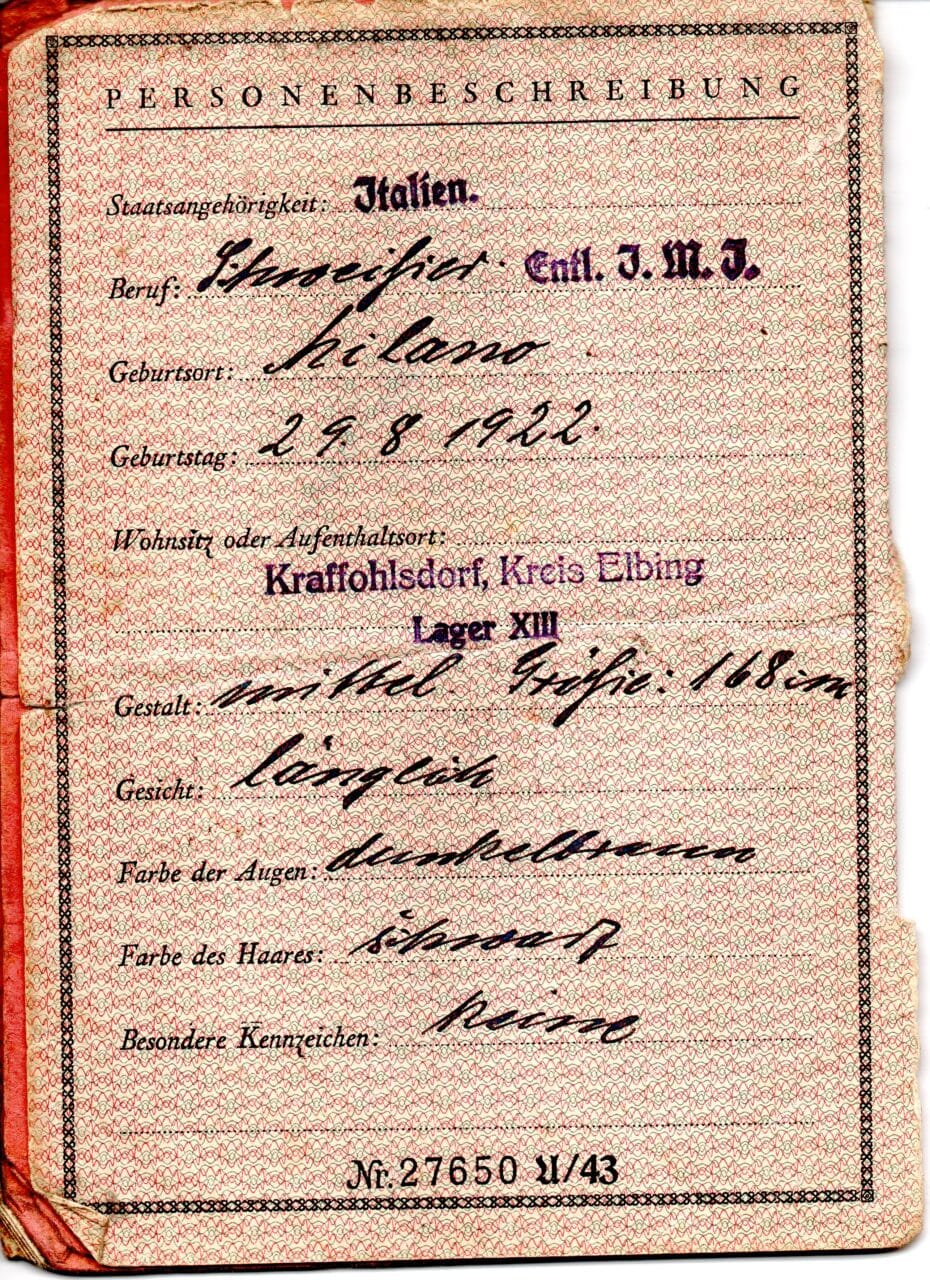 PERSONENBESCHREIBUNG
Staatsangehörigkeit: Italien.
Beruf: Schweißer. Entl. I. M. I.
Geburtsort: Milano
Geburtstag: 29. 8 1922.
Wohnsitz oder Aufenthaltsort:
Kraffohlsdorf, Kreis Elbing
Lager XIII
Gestalt: mittel. Größe: 168 cm
Gesicht: länglich
Farbe der Augen: dunkelbraun
Farbe des Haares: schwarz
Besondere Kennzeichen: keine
Nr. 27650 U/43